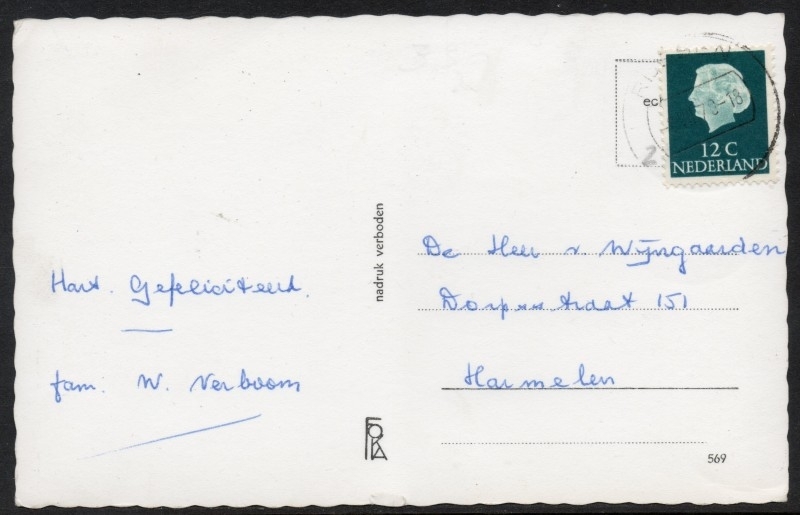 Hart. Gefeliciteerd.
fam: W. Verboom
nadruk verboden
FOKA
ec
12 C
NEDERLAND
De Heer v. Wijngaarden
Dorpsstraat 151
Harmelen
569